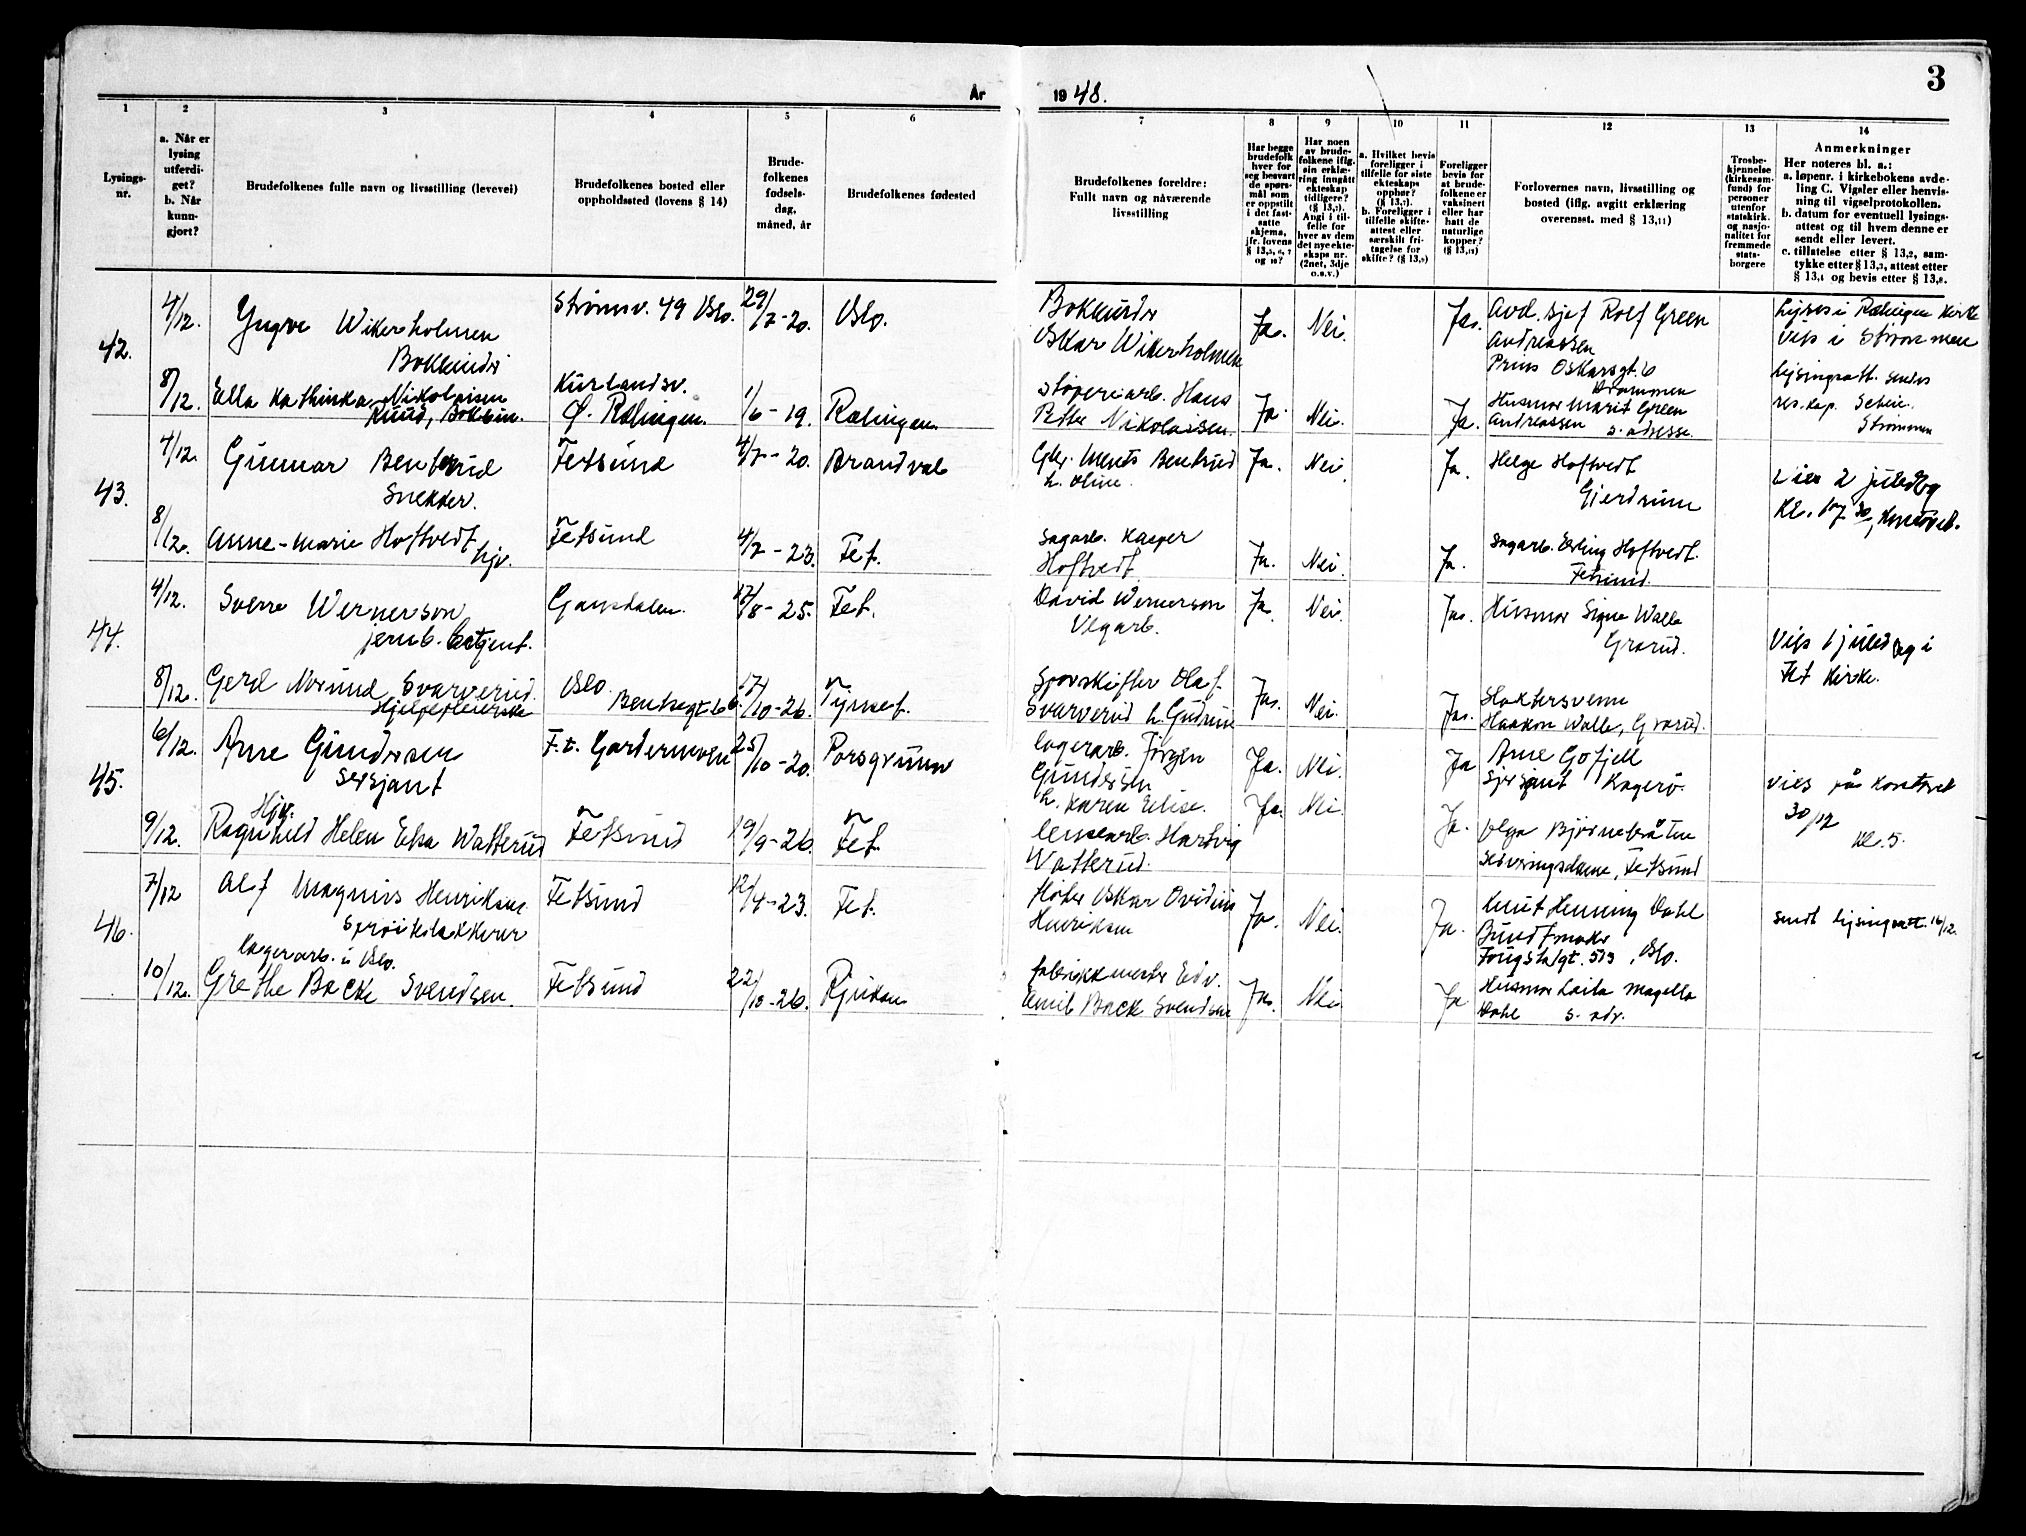 3
År 1948.
1 2 3 4 5 6 7 8 9 10 11 12 13 14
Lysings-
nr.
a. Når er
lysing
utferdi-
get?
b. Når
kunn-
gjort?
Brudefolkenes fulle navn og livsstilling (levevei)
Brudefolkenes bosted eller
oppholdssted (lovens § 14)
Brude-
folkenes
fødsels-
dag,
måned, år
Brudefolkenes fødested
Brudefolkenes foreldre:
Fullt navn og nåværende
livsstilling
Har begge
brudefolk
hver for
seg besvart
de spørs-
mål som
er oppstilt
i det fast-
satte
skjema,
jfr. lovens
Har noen
av brude-
folkene iflg.
sin erklæ-
ring inngått
ekteskap
tidligere?
(§ 13,7).
Angi i til-
felle for
hver av dem
det nye ekte-
skaps nr.
(2net, 3dje
o.s.v.)
a. Hvilket bevis
foreligger i
tilfelle for siste
ekteskaps
opphør?
(§ 13,7).
b. Foreligger i
tilfelle skifte-
attest eller
særskilt fri-
tagelse for
skifte? (§ 13,9)
Foreligger
bevis for
at brude-
folkene er
vaksinert
eller har
hatt de
naturlige
kopper?
Forlovernes navn, livsstilling og
bosted (iflg. avgitt erklæring
overensst. med § 13,11)
Trosbe-
kjennelse
(kirkesam-
fund) for
personer
utenfor
statskirk.
og nasjo-
nalitet for
fremmede
stats-
borgere
Anmerkninger
Her noteres bl. a.:
a. løpenr. i kirkebokens avde-
ling C. Vigsler eller henvis-
ning til vigselprotokollen.
b. datum for eventuell lysings-
attest og til hvem denne er
sendt eller levert.
c. tillatelse etter § 13,2, sam-
tykke etter § 13,3, attest etter
§ 13,4 og bevis etter § 13,8.
42.
4/12. Yngve Wikersholmen Strømsv. 49 Oslo. 29/7-20. Oslo.
Oskar Wikerholmen Ja. Nei. Ja. Avd. sjef Rolf Green
Andreassen
Prins Oskarsgt. 6
Drammen
Lyses i Rælingen Kirke
Vies i Strømmen
8/12. Ella Kathinka Nikolaisen Kurlandsv.
Ø. Rælingen. 1/6-19. Rælingen.
Støperiarb. Hans
Petter Nikolaisen. Ja. Nei. Ja. Husmor Marit Green
Andreassen s. adresse.
res. kap.
Strømmen
43.
4/12. Gunnar Benterud Fetsund 4/7-20. Brandval
Snekker.
Ja. Nei. Ja. Helge Hoftvedt
Gjerdrum
8/12. Anne-Marie Hoftvedt Fetsund 4/7-23. Fet.
hjv.
Sagarb. Kasper
Hoftvedt Ja. Nei. Ja. Sagarb. Erling Hoftvedt.
Fetsund.
44.
4/12. Sverre Wernerson Gansdalen. 17/8-25. Fet.
David Wernerson
Vegarb. Ja. Nei. Ja. Husmor Signe Walle
Grorud.
Vies 1 juledag i
Fet Kirke.
8/12. Gerd Norunn Svarverud. Oslo. 17/10-26. Tynset.
Hjelpepleierske
Sporskifter Olaf
Svarverud h. Gudrun Ja. Nei. Ja.
Haakon Walle, Grorud.
45.
6/12. Arne Gundersen F.t. Gardermoen 25/10-20. Porsgrunn
Sersjant
Lagerarb. Jørgen
Gundersen
h. Karen Elise. Ja. Nei. Ja
Sersjant Kragerø.
Vies på kontoret
30/12
kl. 5.
Hjv.
9/12. Ragnhild Helen Elsa Watterud Fetsund 19/9-26. Fet.
Lensearb. Hartvig
Watterud. Ja. Nei. Ja. Olga Bjørnebråten
serveringsdame, Fetsund
46.
7/12 Alf Magnus Henriksen Fetsund 12/4-23. Fet.
Sprøitelakkerer
Henriksen Ja. Nei. Ja. Knut Henning Dahl
Buntmaker
Oslo.
sendt lysingsatt. 16/12.
Lagerarb. i Oslo.
10/12. Grethe Back Svendsen. Fetsund 22/10-26. Rjukan
Fabrikkmester Edv.
Emil Back Svendsen Ja. Nei Ja Husmor Laila Magella
Dahl s. adr.